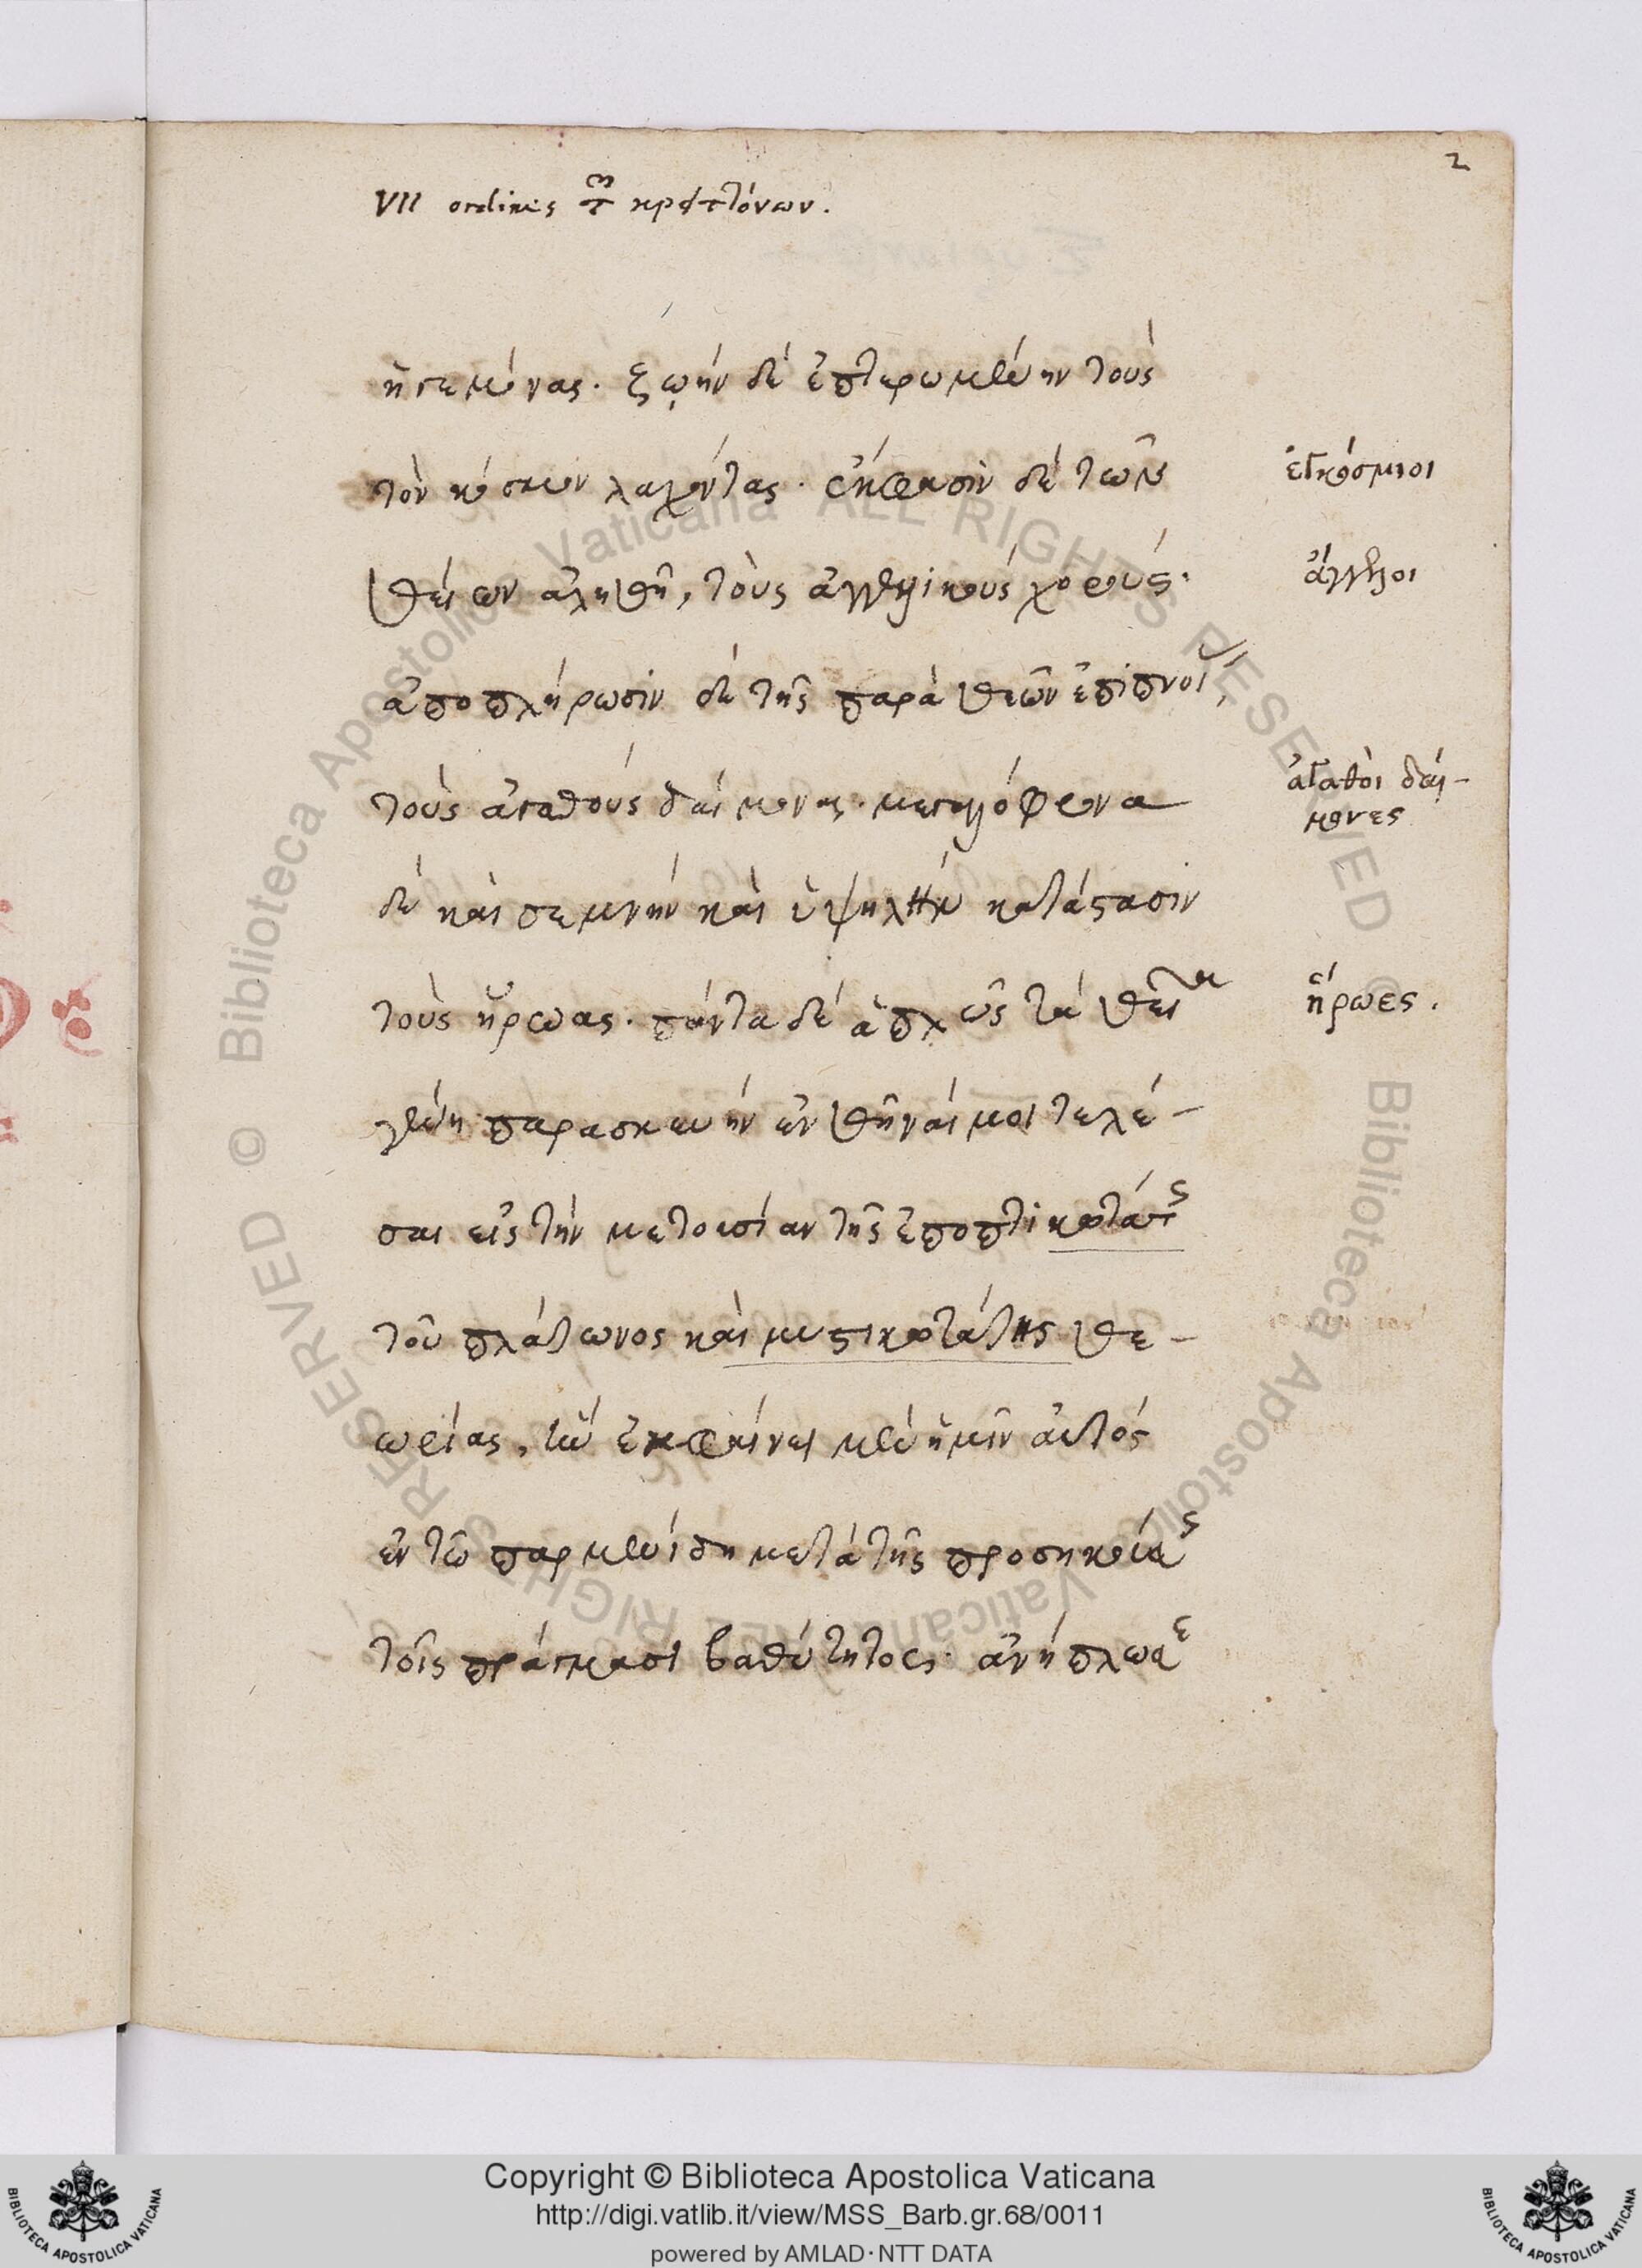 2
VII ordines τῶν κρειττόνων.
ἡγεμόνας. ζωὴν δὲ ἐπτερωμένην τοὺς
τὸν κόσμον λαχόντας. ἔκφασιν δὲ τῶν
ἐγκόσμιοι
θείων ἀληθῆ, τοὺς ἀγγελικοὺς χορούς.
ἄγγελοι
ἀποπλήρωσιν δὲ τῆς παρὰ θεῶν ἐπιπνοίας,
τοὺς ἀγαθοὺς δαίμονας. μεγαλόφρονα
ἀγαθοὶ δαί-
μονες
δὲ καὶ σεμνὴν καὶ ὑψηλὴν κατάστασιν
τοὺς ἥρωας. πάντα δὲ ἁπλῶς τὰ θεῖα
ἥρωες.
γένη παρασκευὴν ἐνθῆναί μοι τελέ-
σαι εἰς τὴν μετουσίαν τῆς ἐποπτικωτάτης
τοῦ πλάτωνος καὶ μυστικωτάτης θε-
ωρίας, ἣν ἐκφαίνει μὲν ἡμῖν αὐτὸς
ἐν τῶ παρμενίδη μετὰ τῆς προσηκούσης
τοῖς πράγμασι βαθύτητος. ἀνήπλωσε
Copyright © Biblioteca Apostolica Vaticana
http://digi.vatlib.it/view/MSS_Barb.gr.68/0011
powered by AMLAD·NTT DATA
BIBLIOTECA APOSTOLICA VATICANA
BIBLIOTECA APOSTOLICA VATICANA
© Biblioteca Apostolica Vaticana ALL RIGHTS RESERVED © Biblioteca Apostolica Vaticana ALL RIGHTS RESERVED